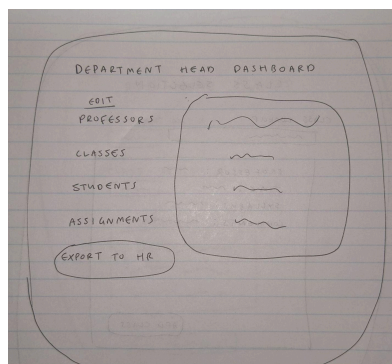 DEPARTMENT HEAD DASHBOARD
EDIT
PROFESSORS
CLASSES
STUDENTS
ASSIGNMENTS
EXPORT TO HR